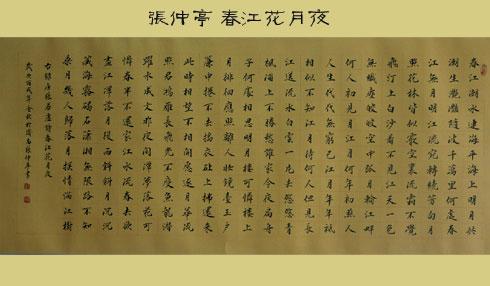 張仲亭 春江花月夜
春江潮水連海平海上明月共
潮生灩灩隨波千萬里何處春
江無月明江流宛轉繞芳甸月
照花林皆似霰空裏流霜不覺
飛汀上白沙看不見江天一色
無纖塵皎皎空中孤月輪江畔
何人初見月江月何年初照人
人生代代無窮已江月年年祗
相似不知江月待何人但見長
江送流水白雲一片去悠悠青
楓浦上不勝愁誰家今夜扁舟
子何處相思明月樓可憐樓上
月徘徊應照離人妝鏡臺玉戶
簾中捲不去搗衣砧上拂還來
此時相望不相聞願逐月華流
照君鴻雁長飛光不度魚龍潛
躍水成文昨夜閒潭夢落花可
憐春半不還家江水流春去欲
盡江潭落月復西斜斜月沉沉
藏海霧碣石瀟湘無限路不知
乘月幾人歸落月搖情滿江樹
右錄唐張若虛詩春江花月夜
張仲亭書